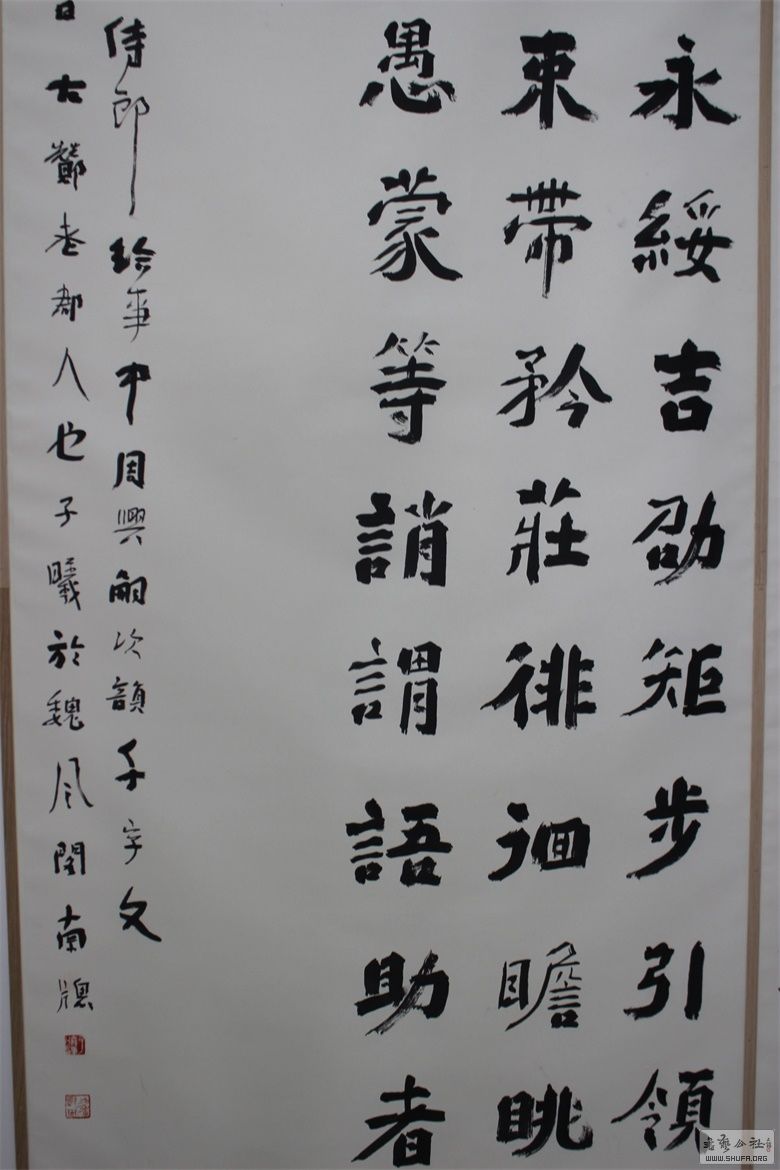 永綏吉劭矩步引領
束帶矜莊徘徊瞻眺
愚蒙等誚謂語助者
侍郎給事中周興嗣次韻千字文
日古酇老郡人也子曦於魏風閣南牕
WWW.SHUFA.ORG